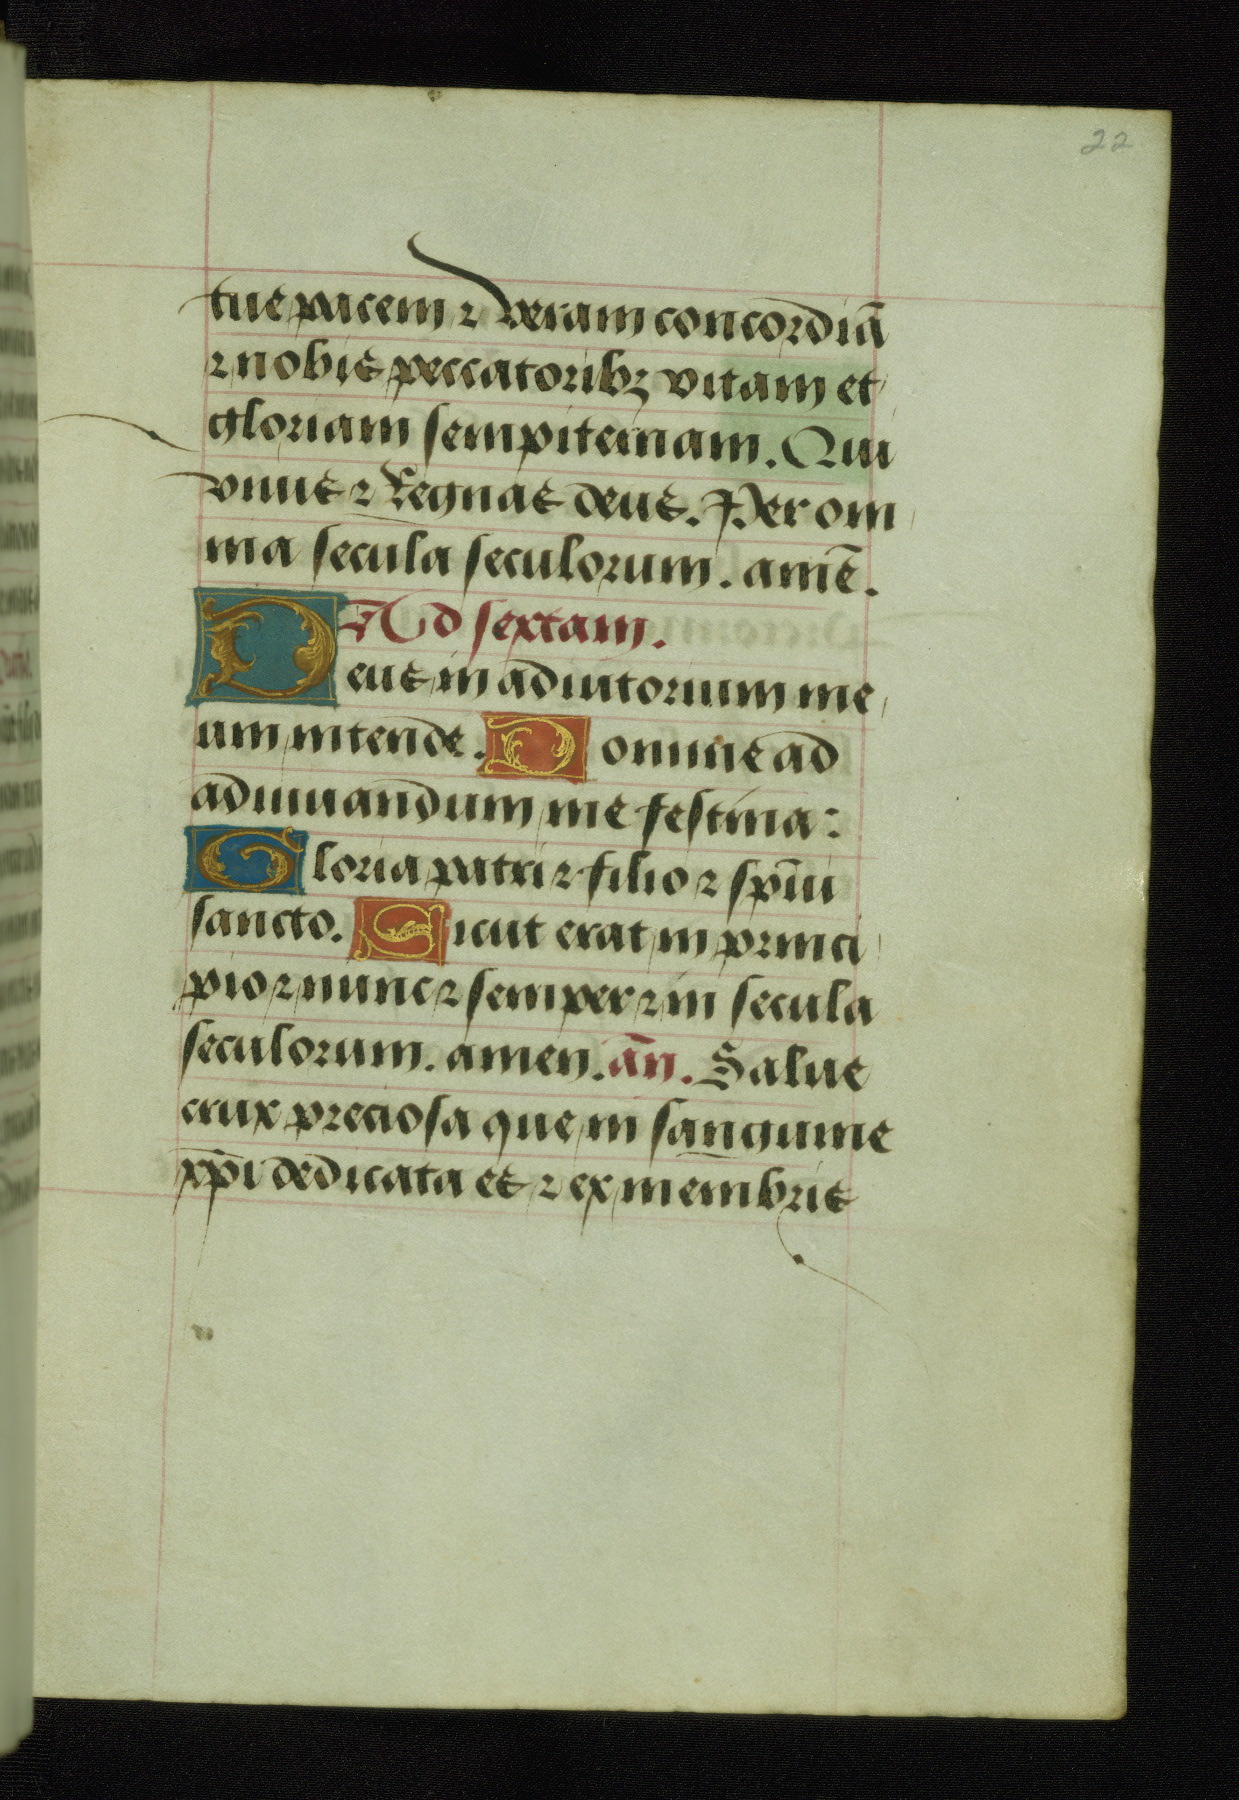 22
tue pacem ⁊ veram concordiā
⁊ nobis peccatoribꝫ vitam et
gloriam sempiternam. Qui
viuis ⁊ Regnas deus. Per om
nia secula seculorum. amē.
Ad sextam.
Deus in adiutorium me
um intende. Domine ad
adiuuandum me festina:
Gloria patri ⁊ filio ⁊ spūi
sancto. Sicut erat in princi
pio ⁊ nunc ⁊ semper ⁊ in secula
seculorum. amen. añ. Salue
crux preciosa que in sanguine
xp̄i dedicata es ⁊ ex membris